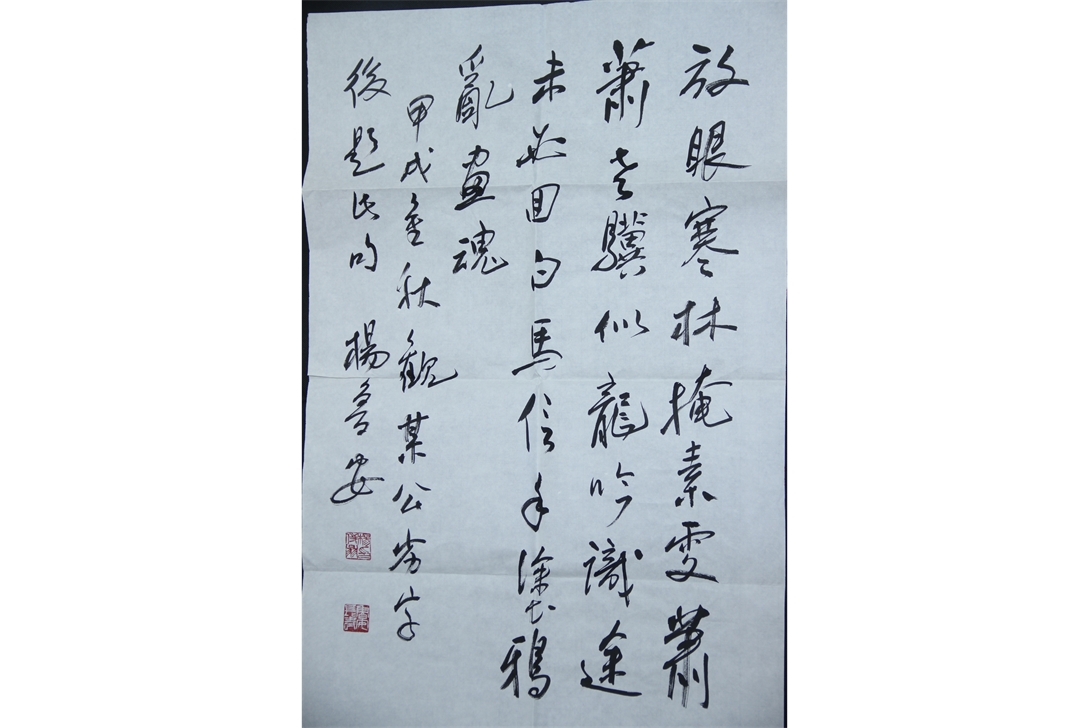 放眼寒林掩素雯蕭
蕭老驥似龍吟識途
未必回白馬信手塗鴉
亂畫魂
甲戌金秋觀某公劣字
後題此句 楊魯安